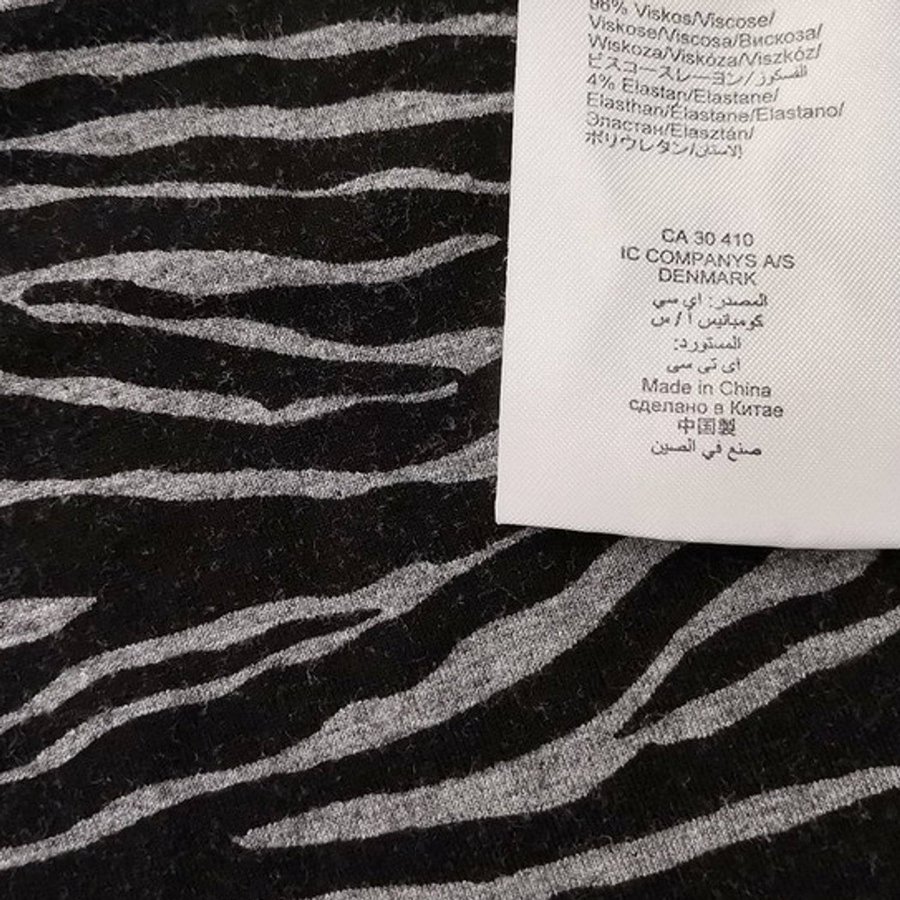 96% Viskos/Viscose/
Viskose/Viscosa/Вискоза/
Wiskoza/Viskóza/Viszkóz/
ビスコースレーヨン/الفسكوز
4% Elastan/Elastane/
Elasthan/Élastane/Elastano/
Эластан/Elasztán/
ポリウレタン/الاستان
CA 30 410
IC COMPANYS A/S
DENMARK
المصدر: اي سي
كومبانيس ا / س
المستورد:
اى تى سى
Made in China
сделано в Китае
中国製
صنع في الصين